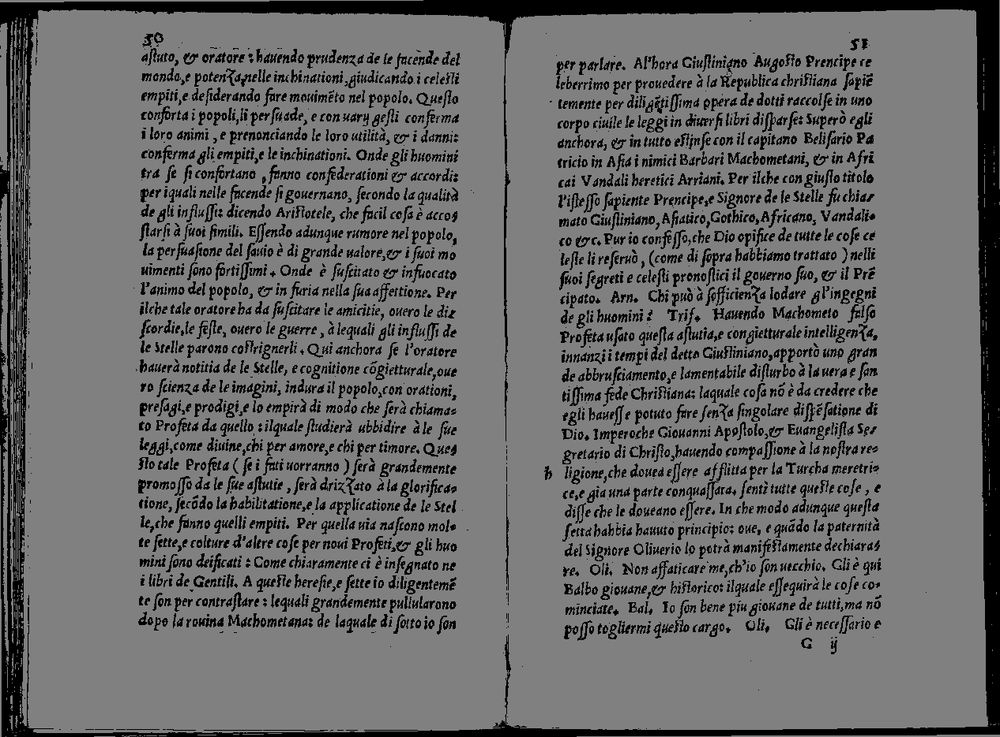 50
astuto, & oratore : hauendo prudenza de le facende del
mondo, e potenza, nelle inchinationi, giudicando i celesti
empiti, e desiderando fare mouimẽto nel popolo. Questo
conforta i popoli, li persuade, e con uarij gesti conferma
i loro animi, e prenonciando le loro utilità, & i danni:
conferma gli empiti, e le inchinationi. Onde gli huomini
tra se si confortano, fanno confederationi & accordi:
per i quali nelle facende si gouernano, secondo la qualità
de gli influssi: dicendo Aristotele, che facil cosa è acco-
starsi à suoi simili. Essendo adunque rumore nel popolo,
la persuasione del sauio è di grande ualore, & i suoi mo
uimenti sono fortissimi. Onde è suscitato & infuocato
l'animo del popolo, & in furia nella sua affettione. Per
ilche tale oratore ha da suscitare le amicitie, ouero le di-
scordie, le feste, ouero le guerre, à lequali gli influssi de
le Stelle parono costrignerli. Qui anchora se l'oratore
hauerà notitia de le Stelle, e cognitione cõgietturale, oue
ro scienza de le imagini, indura il popolo, con orationi,
presagi, e prodigi, e lo empirà di modo che serà chiama-
to Profeta da quello : ilquale studierà ubbidire à le sue
leggi, come diuine, chi per amore, e chi per timore. Que-
sto tale Profeta ( se i fati uorranno ) serà grandemente
promosso da le sue astutie, serà drizzato à la glorifica-
tione, secõdo la habilitatione, e la applicatione de le Stel
le, che fanno quelli empiti. Per quella uia nascono mol-
te sette, e colture d'altre cose per noui Profeti, & gli huo
mini sono deificati : Come chiaramente ci è insegnato ne
i libri de Gentili. A queste heresie, e sette io diligentemẽ
te son per contrastare : lequali grandemente pullularono
dopo la rouina Machometana: de laquale di sotto io son
51
per parlare. Al'hora Giustiniano Augosto Prencipe ce
leberrimo per prouedere à la Republica christiana sapiẽ
temente per diligẽtissima opera de dotti raccolse in uno
corpo ciuile le leggi in diuersi libri disparse: Superò egli
anchora, & in tutto estinse con il capitano Belisario Pa
tricio in Asia i nimici Barbari Machometani, & in Afri
cai Vandali heretici Arriani. Per ilche con giusto titolo
l'istesso sapiente Prencipe, e Signore de le Stelle fu chia-
mato Giustiniano, Asiatico, Gothico, Africano, Vandali-
co &c. Pur io confesso, che Dio opifice de tutte le cose ce
leste li reseruò, (come di sopra habbiamo trattato ) nelli
suoi segreti e celesti pronostici il gouerno suo, & il Prẽ
cipato. Arn. Chi può à sofficienza lodare gl'ingegni
de gli huomini? Trif. Hauendo Machometo falso
Profeta usato questa astutia, e congietturale intelligenza,
innanzi i tempi del detto Giustiniano, apportò uno gran
de abbrusciamento, e lamentabile disturbo à la uera e san
tissima fede Christiana: laquale cosa nõ è da credere che
egli hauesse potuto fare senza singolare dispẽsatione di
Dio. Imperoche Giouanni Apostolo, & Euangelista Se-
gretario di Christo, hauendo compassione à la nostra re-
h ligione, che douea essere afflitta per la Turcha meretri-
ce, e gia una parte conquassata. sentì tutte queste cose, e
disse che le doueano essere. In che modo adunque questa
setta habbia hauuto principio: oue, e quãdo la paternità
del Signore Oliuerio lo potrà manifestamente dechiara-
re. Oli. Non affaticare me, ch'io son uecchio. Gli è qui
Balbo giouane, & historico: ilquale essequirà le cose co-
minciate. Bal. Io son bene piu giouane de tutti, ma nõ
posso togliermi questo cargo. Oli. Gli è necessario e
G ij